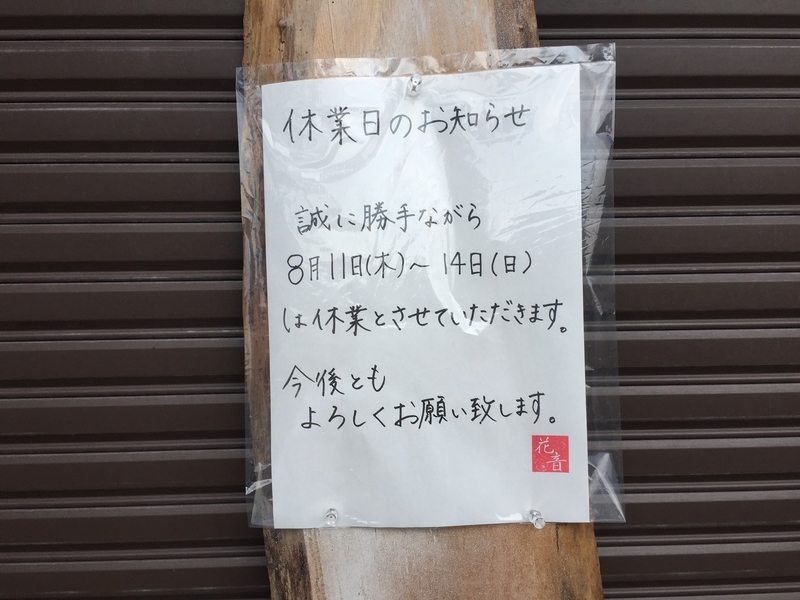 休業日のお知らせ
誠に勝手ながら
8月11日(木)～14日(日)
は休業とさせていただきます。
今後とも
よろしくお願い致します。
花音